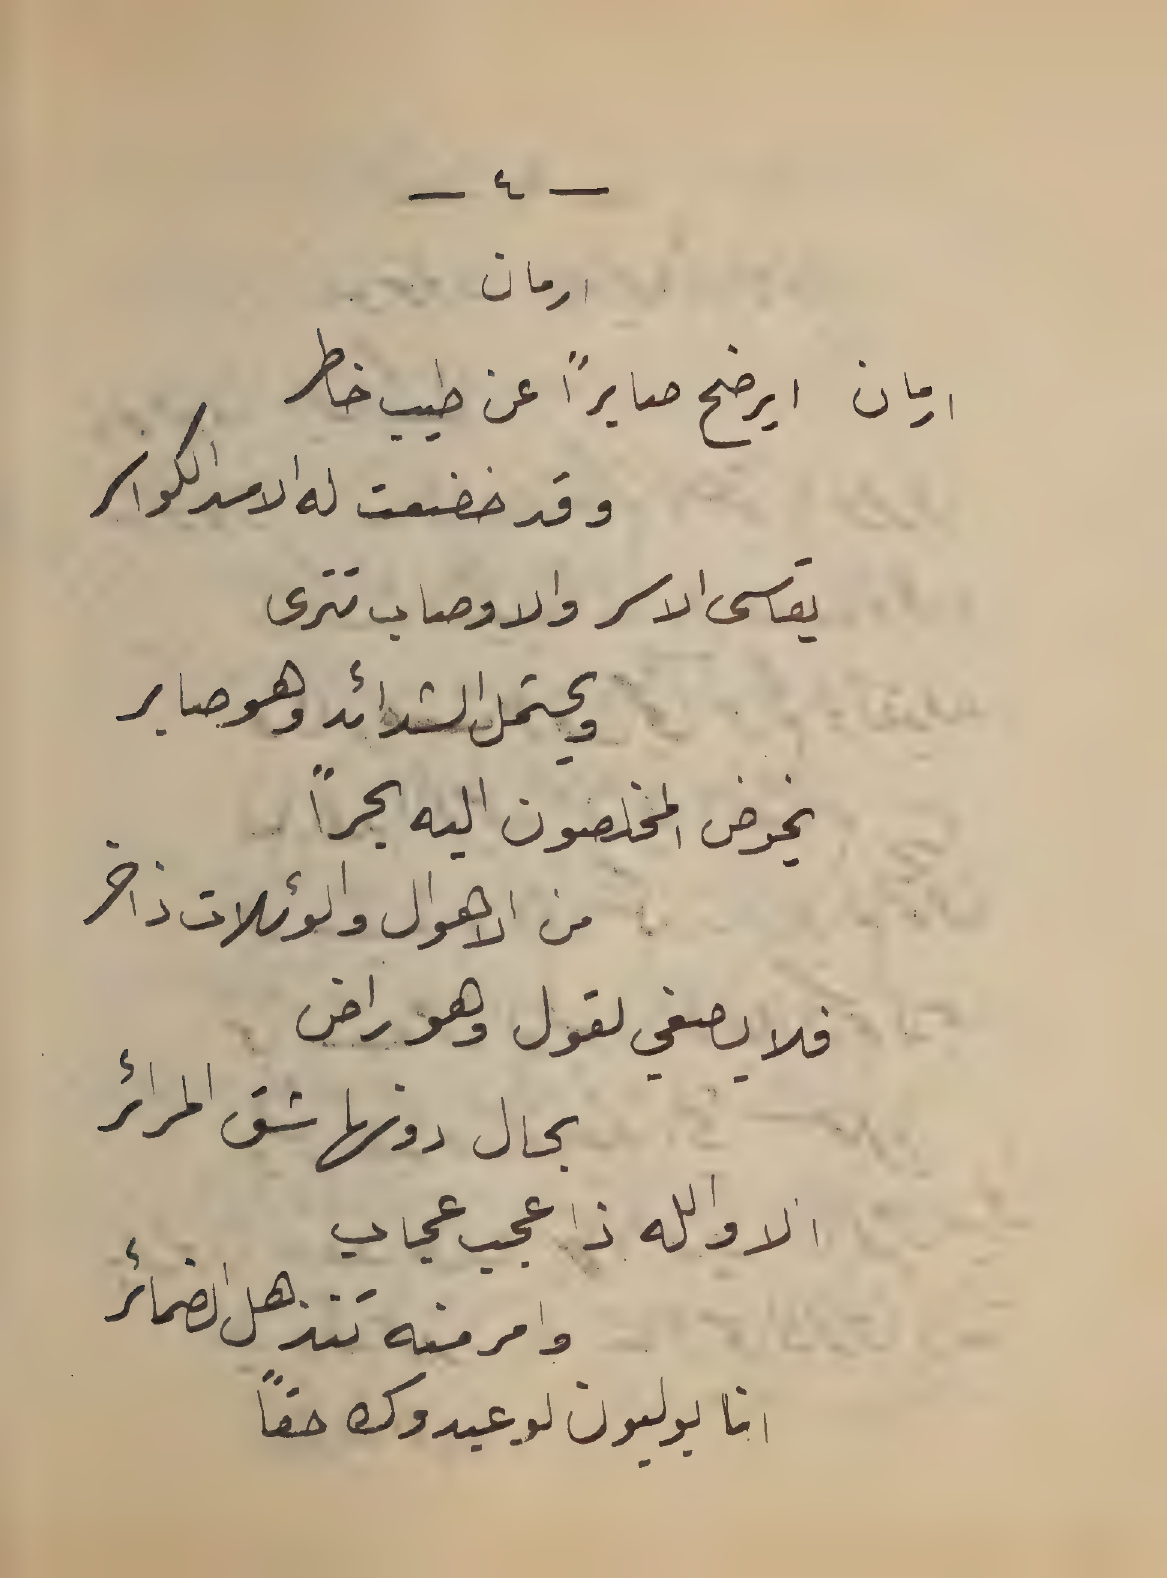 — ٤ —
ارمان
ارمان ايرضخ صابراً عن طيب خاطر
وقد خضعت له الاسد الكواسر
يقاسى الاسر والاوصاب تترى
ويحتمل الشدائد وهو صابر
يخوض المخلصون اليه بحراً
من الاهوال والويلات ذاخر
فلا يصغي لقول وهو راض
بحال دونها شق المرائر
الا والله ذا عجب عجاب
وامر منه تنذهل الضمائر
انا بوليون لو عيدوك حقاً